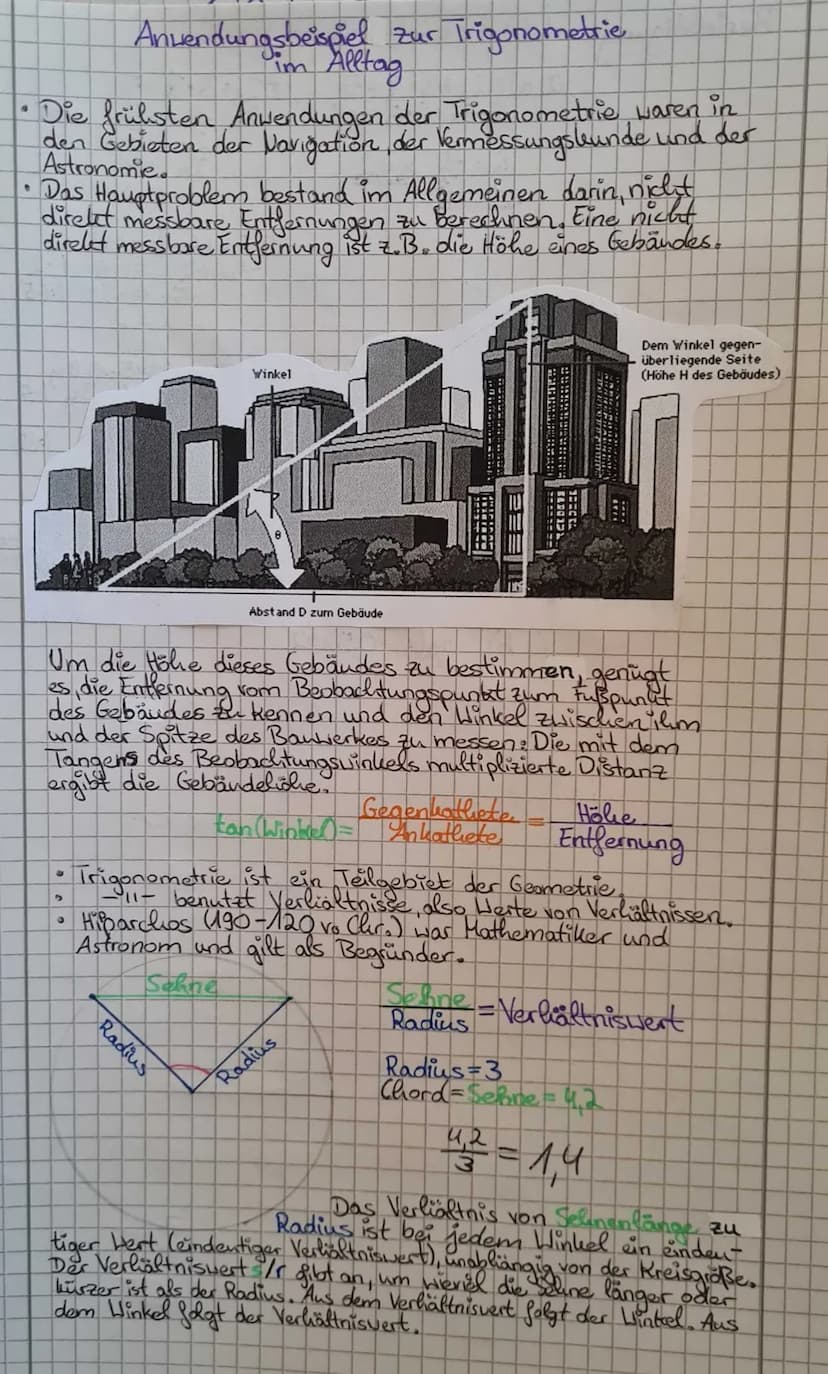 Anwendungsbeispiel zur Trigonometrie
im Alltag
• Die frühsten Anwendungen der Trigonometrie waren in
den Gebieten der Navigation, der Vermessungskunde und der
Astronomie.
• Das Hauptproblem bestand im Allgemeinen darin, nicht
direkt messbare Entfernungen zu berechnen. Eine nicht
direkt messbare Entfernung ist z.B. die Höhe eines Gebäudes.
Dem Winkel gegen-
überliegende Seite
(Höhe H des Gebäudes)
Winkel
θ
Abstand D zum Gebäude
Um die Höhe dieses Gebäudes zu bestimmen, genügt
es, die Entfernung vom Beobachtungspunkt zum Fußpunkt
des Gebäudes zu kennen und den Winkel zwischen ihm
und der Spitze des Bauwerkes zu messen: Die mit dem
Tangens des Beobachtungswinkels multiplizierte Distanz
ergibt die Gebäudehöhe.
tan(Winkel) = Gegenkathete / Ankathete = Höhe / Entfernung
• Trigonometrie ist ein Teilgebiet der Geometrie.
• -"- benutzt Verhältnisse, also Werte von Verhältnissen.
• Hipparchos (190-120 v. Chr.) war Mathematiker und
Astronom und gilt als Begründer.
Sehne
Radius
Radius
Sehne / Radius = Verhältniswert
Radius = 3
Chord = Sehne = 4,2
4,2 / 3 = 1,4
Das Verhältnis von Sehnenlänge zu
Radius ist bei jedem Winkel ein eindeu-
tiger Wert (eindeutiger Verhältniswert), unabhängig von der Kreisgröße.
Der Verhältniswert s/r gibt an, um wieviel die Sehne länger oder
kürzer ist als der Radius. Aus dem Verhältniswert folgt der Winkel. Aus
dem Winkel folgt der Verhältniswert.